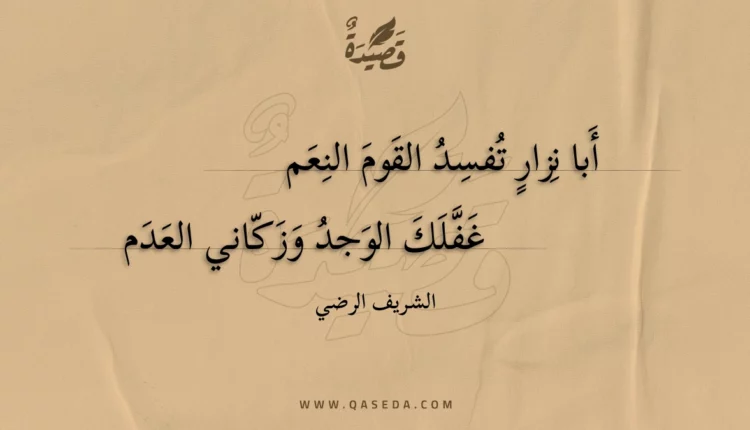 قَصِيْدَةٌ
أَبا نِزارٍ تُفسِدُ القَومَ النِعَم
غَفَّلَكَ الوَجدُ وَزَكّاني العَدَم
الشريف الرضي
WWW.QASEDA.COM